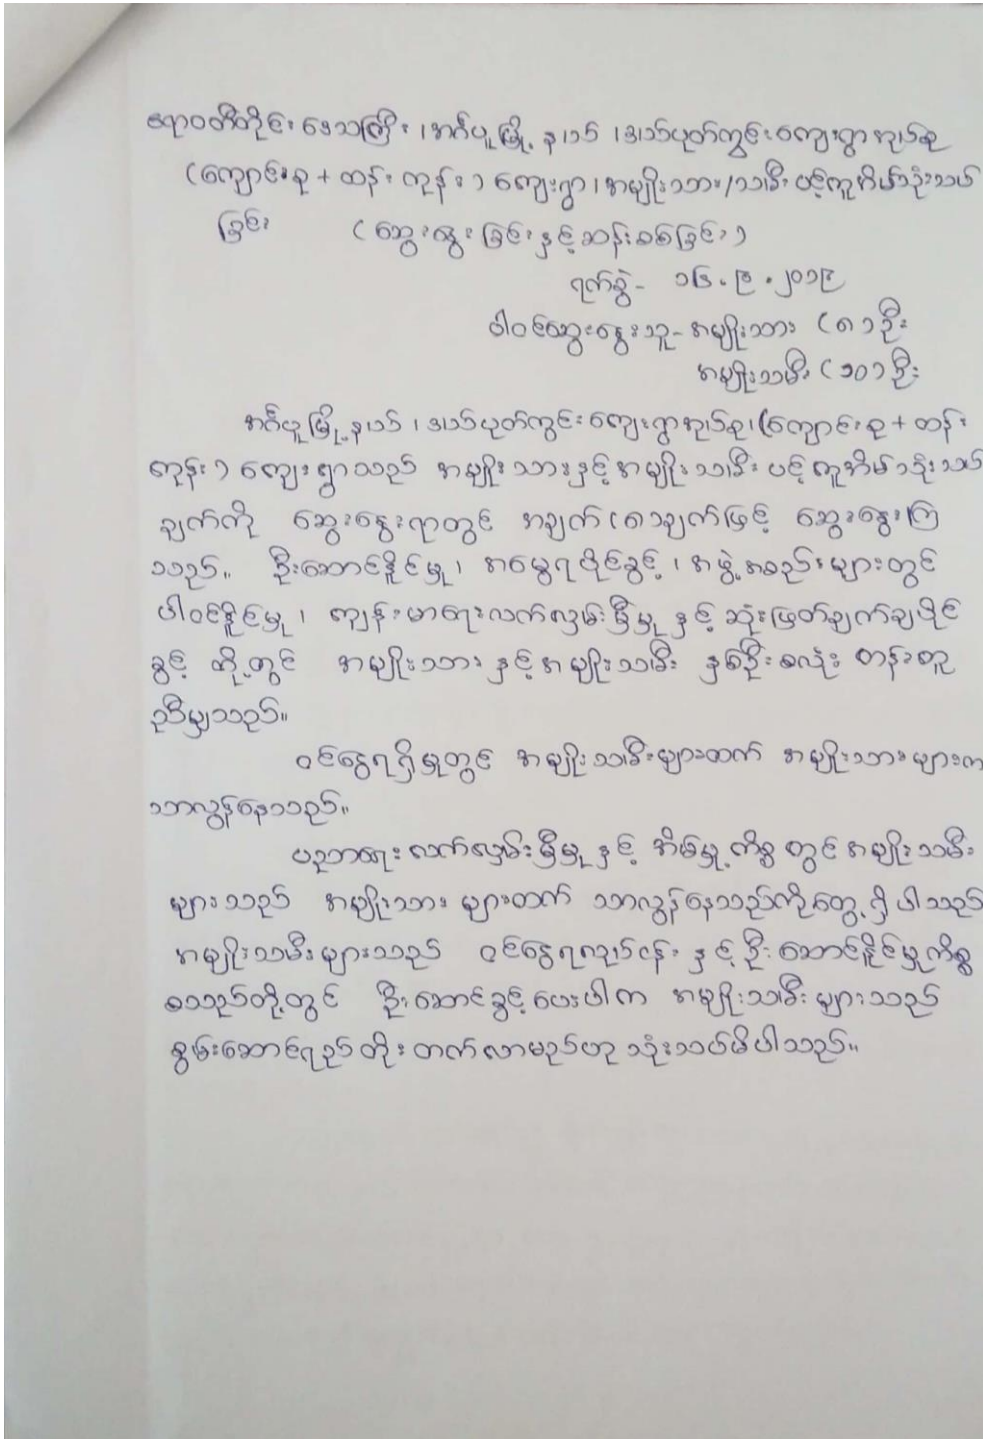 ဧရာဝတီတိုင်းဒေသကြီး၊ အင်္ဂပူမြို့နယ်၊ ဒါးယ်ပုတ်ကွင်းကျေးရွာအုပ်စု
(ကျောင်းစု + ထန်းကုန်း) ကျေးရွာ၊ အမျိုးသား/သမီး ပင့်ကူအိမ်သုံးသပ်
ခြင်း (ဆွေးနွေးခြင်းနှင့်ဆန်းစစ်ခြင်း)
ရက်စွဲ- ၁၆.၉.၂၀၁၉
ပါဝင်ဆွေးနွေးသူ- အမျိုးသား (၈)ဦး
အမျိုးသမီး (၁၀)ဦး
အင်္ဂပူမြို့နယ်၊ ကျေးရွာအုပ်စု၊ (ကျောင်းစု + ထန်း
ကုန်း) ကျေးရွာသည် အမျိုးသားနှင့်အမျိုးသမီး ပင့်ကူအိမ်သုံးသပ်
ချက်ကို ဆွေးနွေးရာတွင် အချက်(၈)ချက်ဖြင့် ဆွေးနွေးကြ
သည်။ ဦးဆောင်နိုင်မှု၊ အမွေရပိုင်ခွင့်၊ အဖွဲ့အစည်းများတွင်
ပါဝင်နိုင်မှု၊ ကျန်းမာရေးလက်လှမ်းမှီမှုနှင့် ဆုံးဖြတ်ချက်ချပိုင်
ခွင့် တို့တွင် အမျိုးသားနှင့်အမျိုးသမီး နှစ်ဦးစလုံး တန်းတူ
ညီမျှသည်။
ဝင်ငွေရရှိမှုတွင် အမျိုးသမီးများထက် အမျိုးသားများက
သာလွန်နေသည်။
ပညာရေးလက်လှမ်းမှီမှုနှင့် အိမ်မှုကိစ္စတွင်အမျိုးသမီး
များသည် အမျိုးသားများထက် သာလွန်နေသည်ကိုတွေ့ရှိပါသည်
အမျိုးသမီးများသည် ဝင်ငွေရလုပ်ငန်းနှင့်ဦးဆောင်နိုင်မှုကိစ္စ
စသည်တို့တွင် ဦးဆောင်ခွင့်ပေးပါက အမျိုးသမီးများသည်
စွမ်းဆောင်ရည်တိုးတက်လာမည်ဟု သုံးသပ်မိပါသည်။